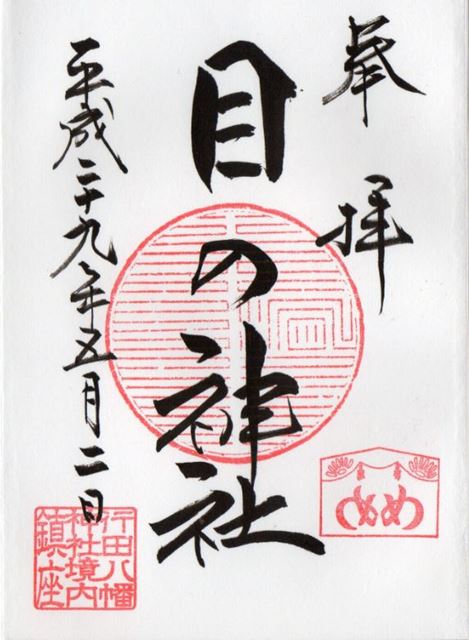 奉拝
目の神社
平成二十九年五月二日
行田八幡
神社境内
鎮座
めめ